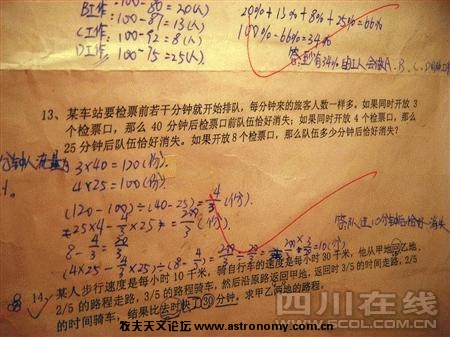 B工作:100-80=20(人)
工作:100-87=13(人)
C工作:100-92=8(人)
D工作:100-75=25(人)
20%+13%+8%+25%=66%
100%-66%=34%
答:至少有34%的工人会做A、B、C、D
13、某车站要检票前若干分钟就开始排队，每分钟来的旅客人数一样多，如果同时开放 3
个检票口，那么 40 分钟后检票口前队伍恰好消失。如果同时开放 4 个检票口，那么
25 分钟后队伍恰好消失。如果开放 8 个检票口，那么队伍多少分钟后恰好消失？
3×40=120(份)
4×25=100(份)
(120-100)÷(40-25)=4/3(份)
25×4-4/3×25=200/3(份)
8-4/3=20/3
(4×25-4/3×25)÷(8-4/3)=200/3÷20/3=200/3×3/20=10(个)
答:队过10分钟后恰好消失
14、某人步行速度是每小时 10 千米，骑自行车的速度是每小时 30 千米，他从甲地到乙地，
2/5 的路程走路，3/5 的路程骑车，然后沿原路返回甲地，返回时 3/5 的时间走路，2/5
的时间骑车，结果比去时快了30 分钟。求甲乙两地的路程。
四川在线
WWW.SCOL.COM.CN
牧夫天文论坛 www.astronomy.com.cn